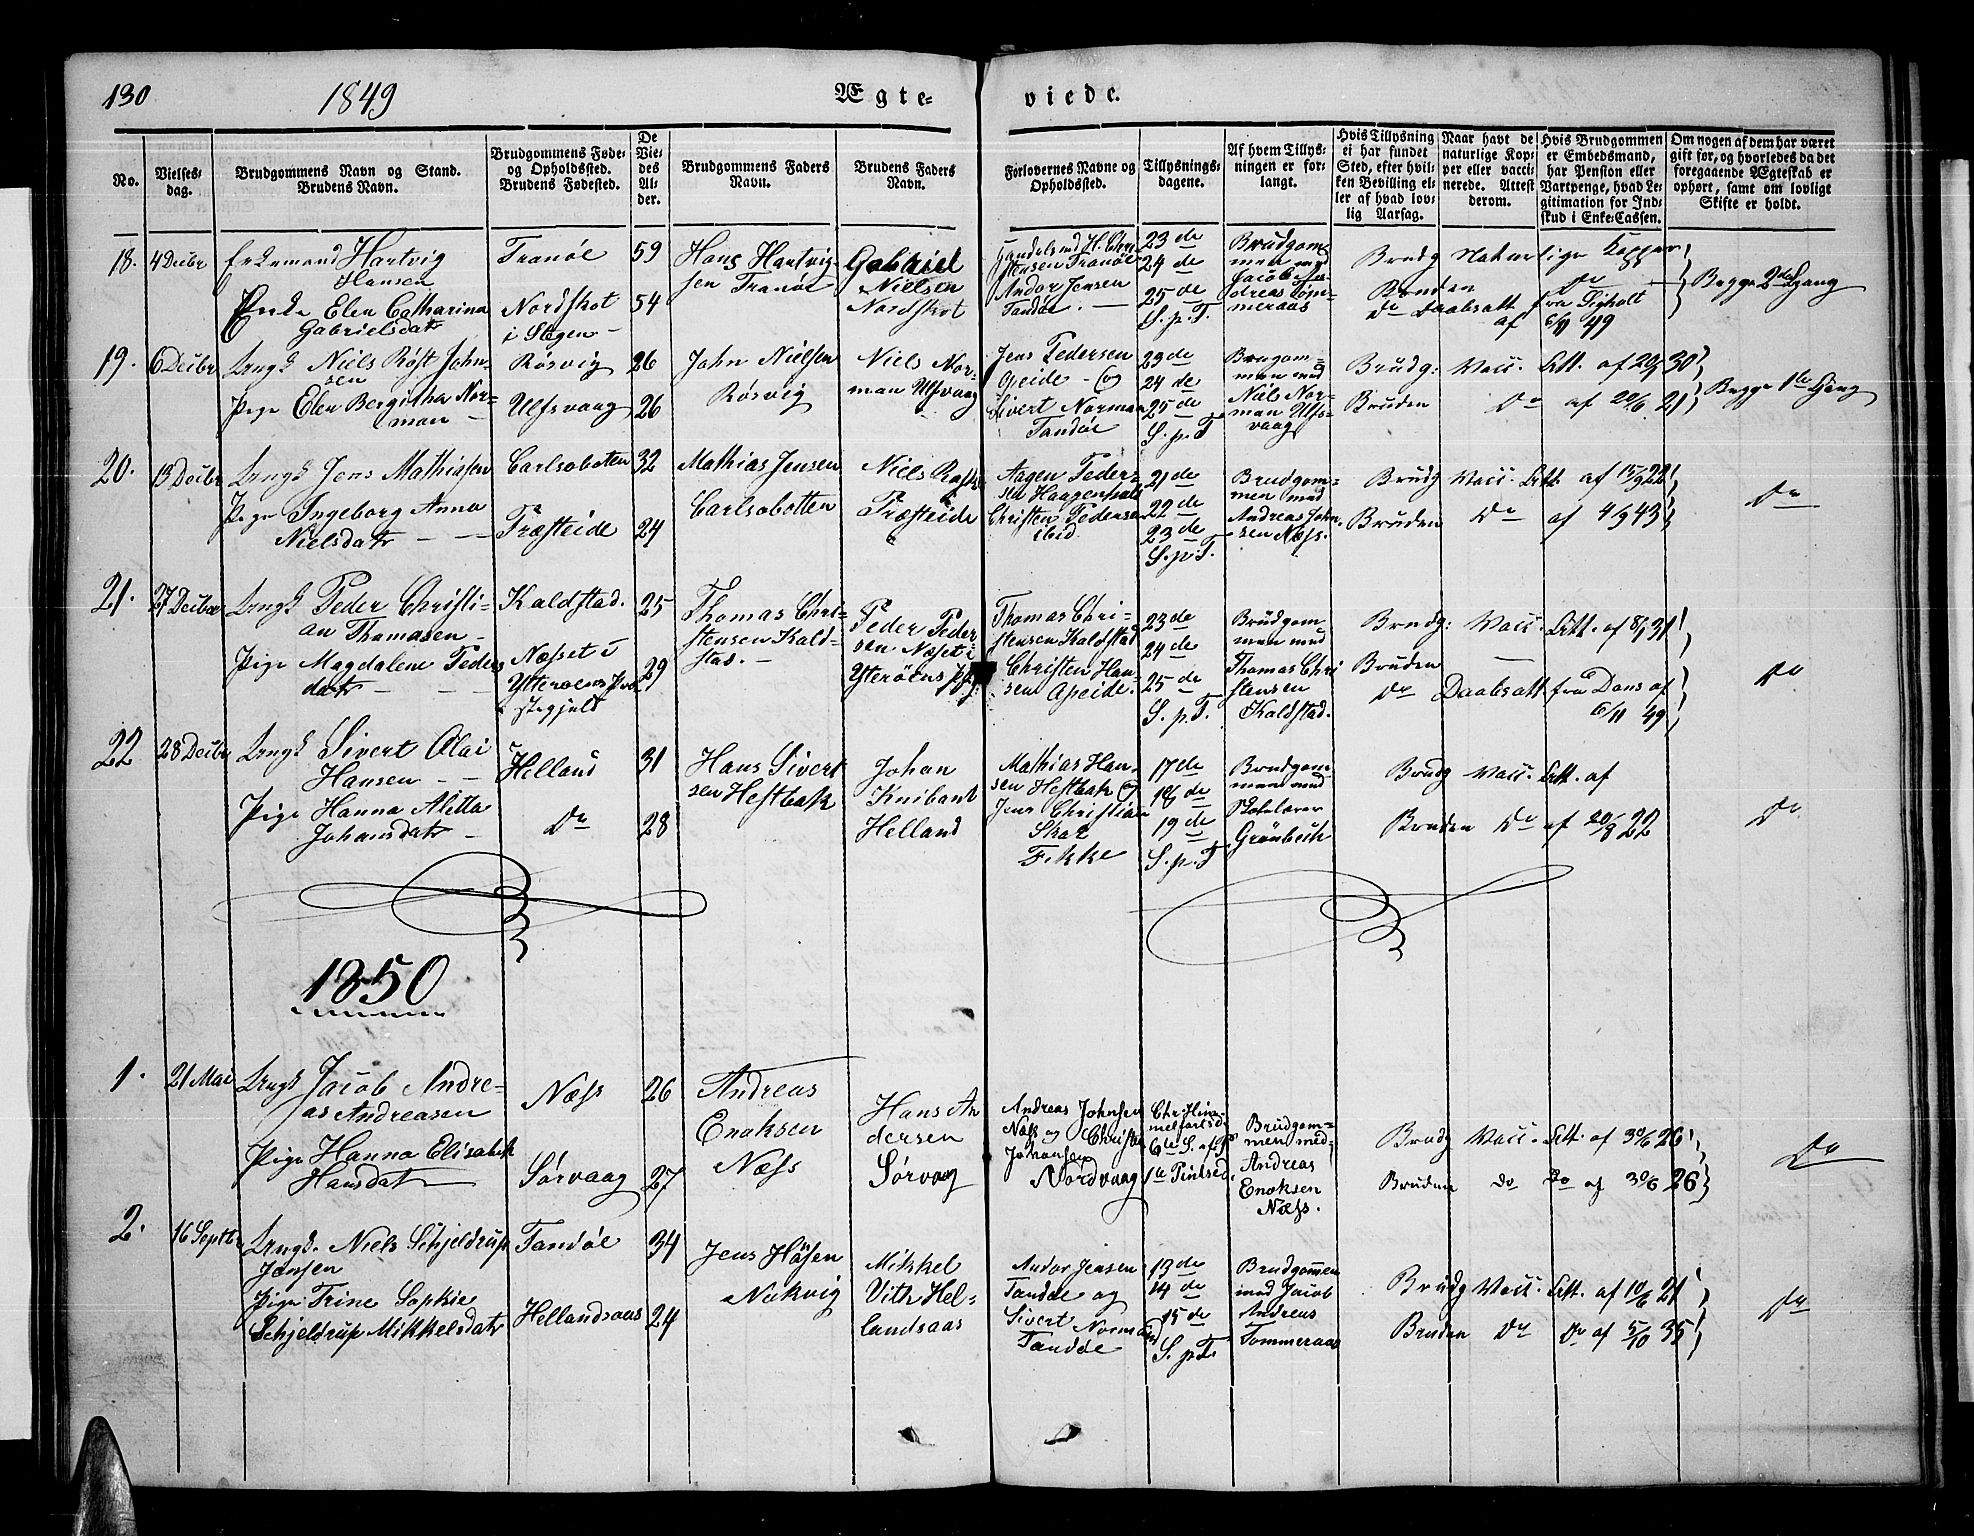 130
1849
Ægte-
viede.
No.
Vielses-
dag.
Brudgommens Navn og Stand.
Brudens Navn.
Brudgommens Føde-
og Opholdssted.
Brudens Fødested.
De
Vie-
des
Al-
der.
Brudgommens Faders
Navn.
Brudens Faders
Navn.
Forlovernes Navne og
Opholdssted.
Tillysnings-
dagene.
Af hvem Tillys-
ningen er for-
langt.
Hvis Tillysning
ei har fundet
Sted, efter hvil-
ken Bevilling el-
ler af hvad lov-
lig Aarsag.
Naar havt de
naturlige Kop-
per eller vacci-
nerede. Attest
derom.
Hvis Brudgommen
er Embedsmand,
har Pension eller
Vartpenge, hvad Le-
gitimation for Ind-
skud i Enke-Cassen.
Om nogen af dem har været
gift før, og hvorledes da det
foregaaende Ægteskab er
ophørt, samt om lovligt
Skifte er holdt.
18.
4 Decbr
Enkemand Hartvig
Hansen
Enke Elen Catharina
Gabrielsdatr
Tranøe
Nordskot
i Stegen
59
54
Hans Hartvig
sen Tranøe
Gabriel
Nielsen
Nordskot
Handelsmd H. Chri-
stensen Tranøe
Andor Jensen
Tandøe.
23de
24de
25de
S. p. T.
Brudgom-
men med
Jacob An-
dreas Tøm-
meraas
Brudg Naturlige Kopper
Bruden Do
Do Daabsatt fra
af 6/11 49
Begge 2de Gang
19.
6 Decbr
Ungk Niels Røst John-
sen
Pige Elen Bergitha Nor-
man
Røsvig
Ulfsvaag
26
26
John Nielsen
Røsvig
Niels Nor-
man Ulfsvaag
Jens Pedersen
Apeide - og
Sivert Norman
Tandøe
23de
24de
25de
S. p. T.
Brugom-
men med
Niels Nor-
man Ulfs-
vaag
Brudg: Vacc. Att. af 30
Bruden Do af 21
Begge 1ste Gang
20.
13 Decbr
Ungk Jens Mathiasen
Pige Ingeborg Anna
Nielsdatr
Carlsobotten
Træfteide
32
24
Mathias Jensen
Carlsobotten
Niels
Træfteide
Aagen Peder-
sen
Christen Pedersen
ibid
21de
22de
23de
S. p. T.
Brudgom-
men med
Andreas John-
sen Næss.
Brudg Vacc. Att. af 15/9 22
Bruden Do af 4/9 43
Do
21.
27 Decbr
Ungk Peder Christi-
an Thomasen
Pige Magdalene Peders
datr
Kaldstad.
Næsset i
Ytterøens Præ-
stegjeld
25
29
Thomas Chri-
stensen Kald-
stad.
Peder Peder
sen Næsset i
Ytterøens
Thomas Chri-
stensen Kaldstad
Christen Han-
sen Apeide.
23de
24de
25de
S. p. T.
Brudgom
men med
Thomas Chri
stensen
Kaldstad.
Brudg: Vacc. Att. af 8/1 31
Bruden
Do Daabsatt. fra Dans af
6/11 49
Do
22
28 Decbr
Ungk Sivert Olai
Hansen
Pige Hanna Aletta
Johansdatr
Helland
Do
31
28
Hans Sivert
sen Hestbak
Johan
Knibant
Helland
Mathias Han-
sen Hestbak og
Jens Christian
Skar
Fikke
17de
18de
19de
S. p. T
Brudgom-
men med
Grønbech
Brudg Vacc. Att. af
Bruden Do af 20/8 22
Do
1850
1.
21 Mai
Ungk Jacob Andre-
as Andreasen
Pige Hanna Elisabeth
Hansdatr
Næss
Sørvaag
26
27
Andreas
Enoksen
Næss
Hans An
dersen
Sørvaag
Andreas Johnsen
Næss og Christen
Johansen
Nordvaag
Chr: Him-
melfartsd
6te S. af P
1ste Pintsed.
Brudgom-
men med
Andreas
Enoksen
Næss.
Brudg Vacc. Att. af 30/6 26
Bruden Do Do af 30/6 26
Do
2.
16 Septbr
Ungk. Niels Schjeldrup
Jensen
Pige Trine Sophie
Schjeldrup Mikkelsdatr
Tandøe
Hellandsaas
34
24
Jens
Nakvig
Mikkel
Vith Hel-
landsaas
Andor Jensen
Tandøe og
Sivert Norman
Tandøe
13de
14de
15de
S. p. T.
Brudgommen
med Jacob
Andreas
Tommeraas
Brudg Vacc. Att. af 10/6 21
Bruden Do Do af 5/10 35
Do